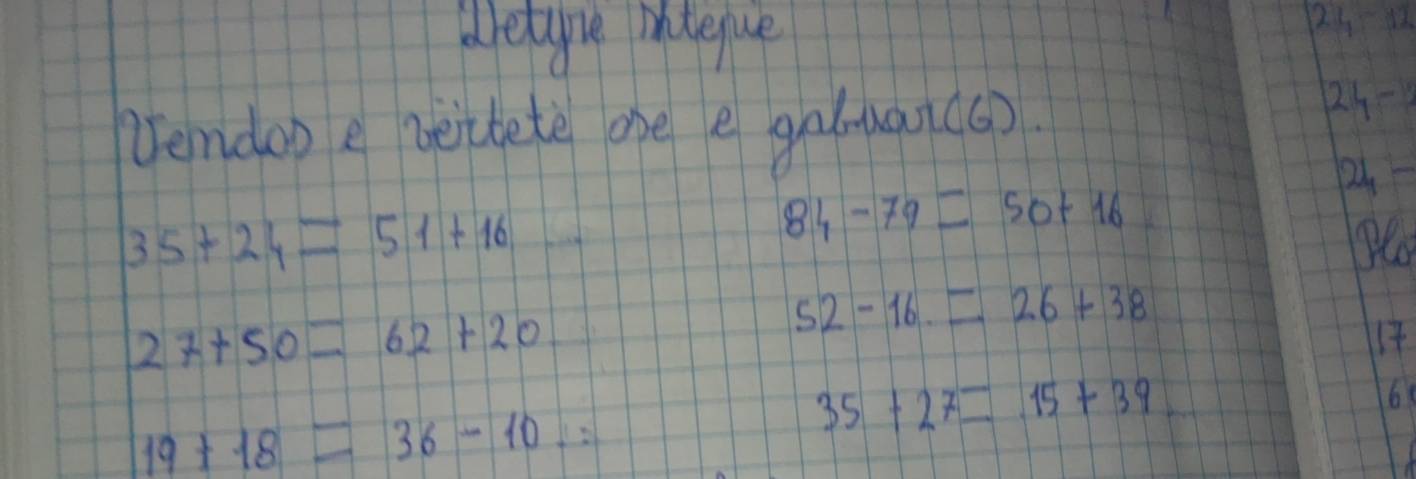 Detyrë shtëpie
Vendos e vërtetë ose e gabuar (G).
35 + 24 = 51 + 16
84 - 79 = 50 + 16
27 + 50 = 62 + 20
52 - 16 = 26 + 38
19 + 18 = 36 - 10
35 + 27 = 15 + 39
24 - 12
24 -
24 -
17